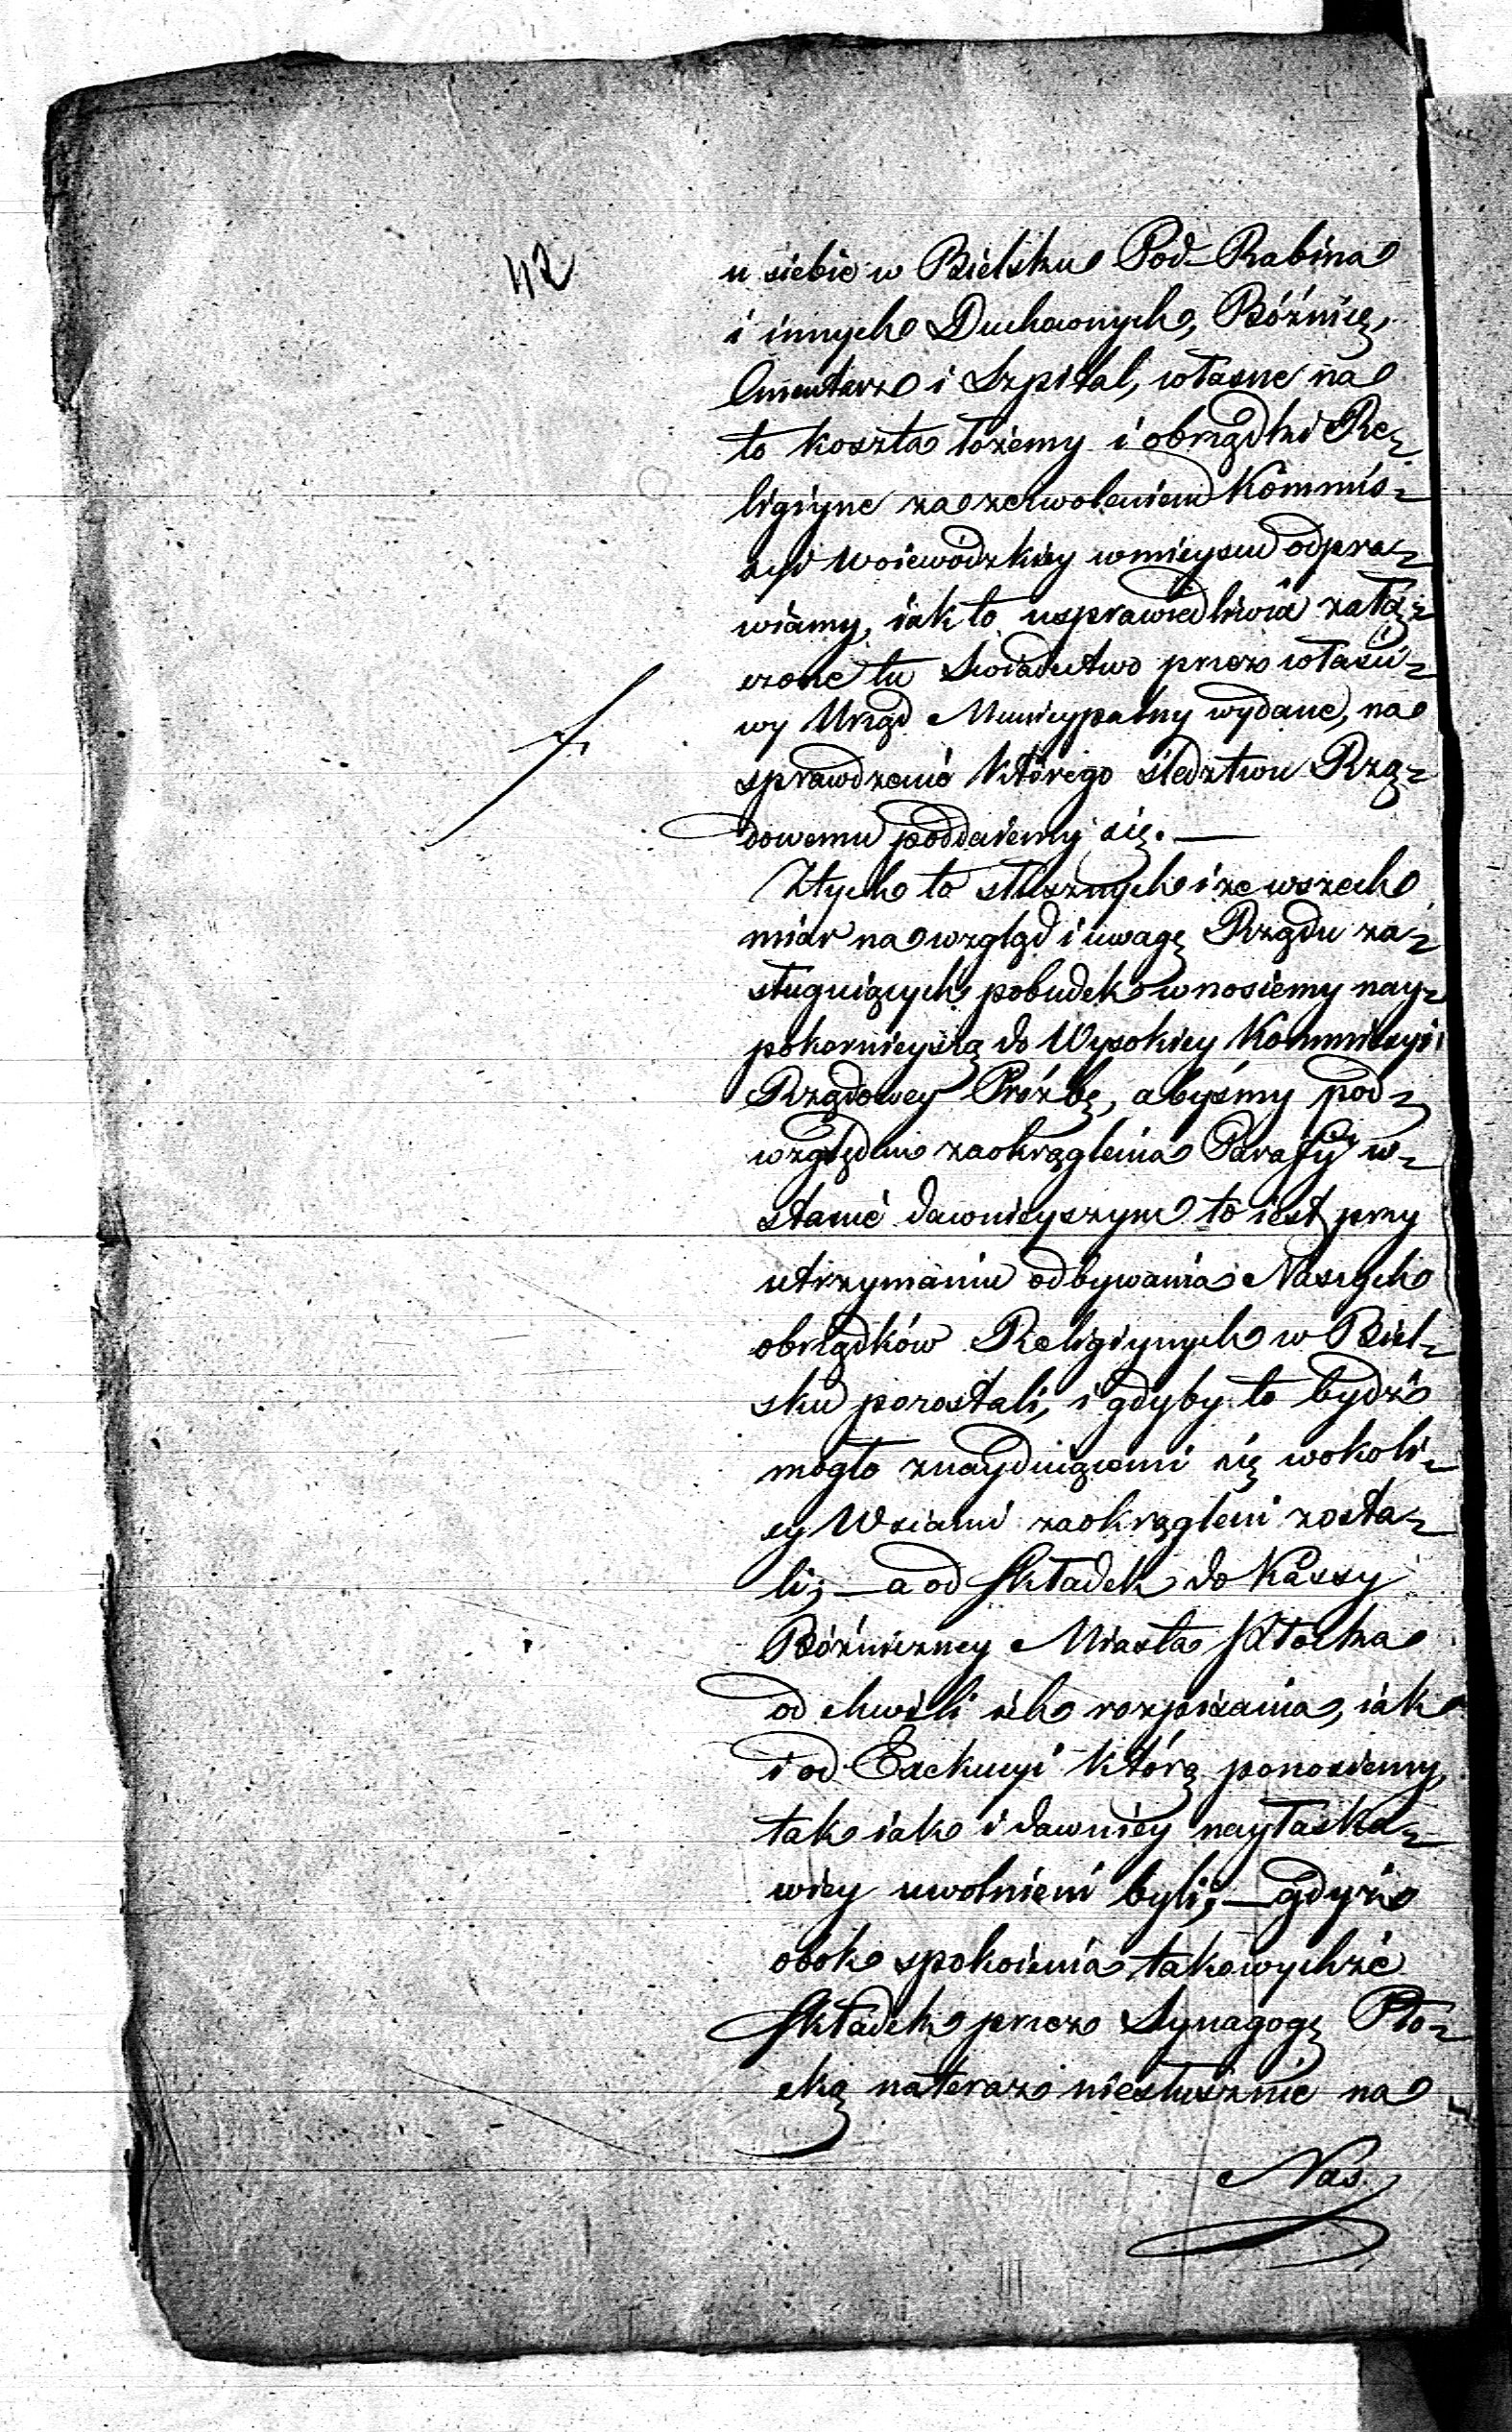 42
u siebie w Bielsku Pod-Rabina
i innych Duchownych, Bóźnicę,
Cmentarz i Szpital, własne na
to koszta łożemy i obrządki Re-
ligiyne za zezwoleniem Kommis-
syi Woiewódzkiey w mieyscu odpra-
wiamy, iak to usprawiedliwia załą-
czone tu Swiadectwo przez właści-
wy Urząd Municypalny wydane, na
sprawdzenie którego śledztwu Rzą-
dowemu poddaiemy się. —
Z tych to słusznych i ze wszech
miar na wzgląd i uwagę Rządu za-
sługuiących pobudek wnosiemy nay-
pokornieyszą do Wysokiey Kommissyi
Rządowey Prózbę, abyśmy pod-
względem zaokrąglenia Parafij w-
stanie dawnieyszym to iest przy
utrzymaniu odbywania Naszych
obrządków Religiynych w Biel-
sku pozostali, i gdyby to bydź
mogło znayduiącemi się w okoli-
cy Wsiami zaokrągleni zosta-
li; — a od Składek do Kassy
Bóźniczney Miasta Płocka
od chwili ich rozpisania, iak
i od Exekucyi którą ponosiemy,
tak iak i dawniey nayłaska-
wiey uwolnieni byli; — gdyż
obok spokoienia takowychże
Składek przez Synagogę Pło-
cką na teraz niesłusznie na
Nas